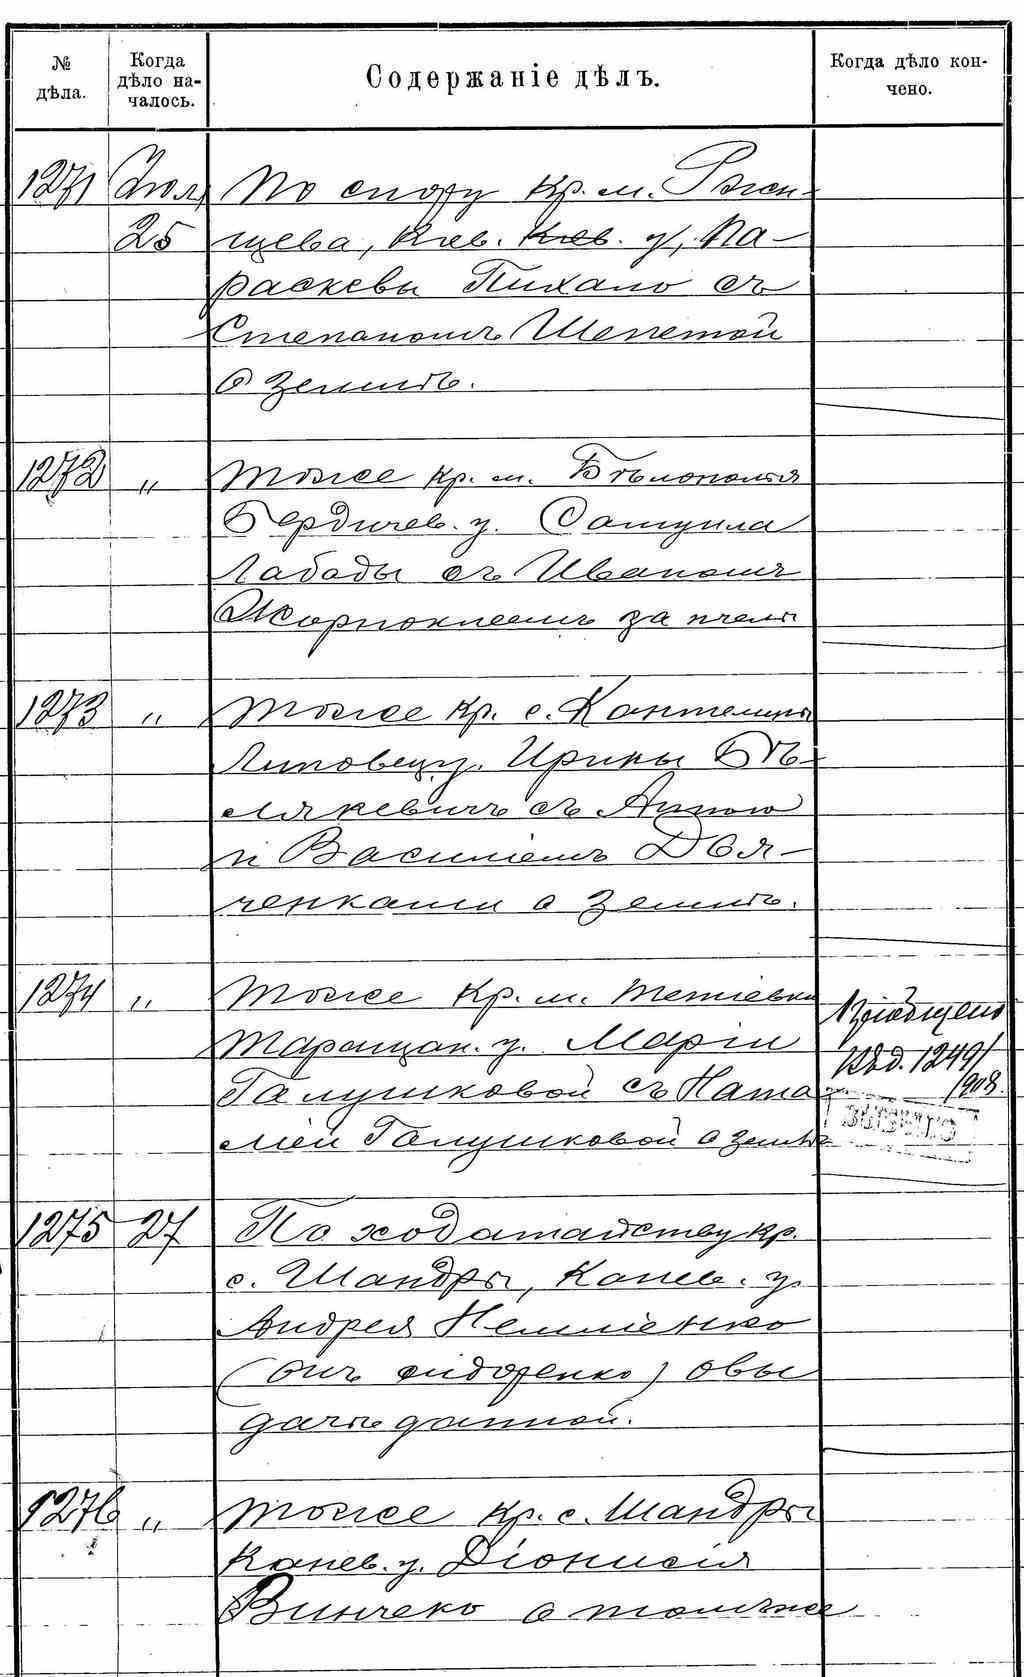 № дѣла.
Когда дѣло на-
чалось.
Содержаніе дѣлъ.
Когда дѣло кон-
чено.
1271 Іюля По спору кр. м. Ржи-
25 щева, Кіев. Кіев. у, Па-
раскевы Пихало съ
Степаномъ Шепетой
о землѣ.
1272 " тоже кр. м. Бѣлополья
Бердичев. у. Самуила
Лабады съ Иваномъ
за пчелы
1273 " тоже кр. с. Кантелины
Липовец. у. Ирины Бѣ-
лякевичъ съ Анною
и Василіемъ Дья-
ченками о землѣ.
1274 " тоже кр. м. Тетіевки
Таращан. у. Маріи
Галушковой съ Ната-
ліей Галушковой о землѣ
Пріобщено
к д. 1249/
908.
1275 27 По ходатайству кр.
с. Шандры, Канев. у.
Андрея
(онъ Сидоренко) о вы
дачѣ данной.
1276 " тоже кр. с. Шандры
Канев. у. Діонисія
Винчеко о томъ же